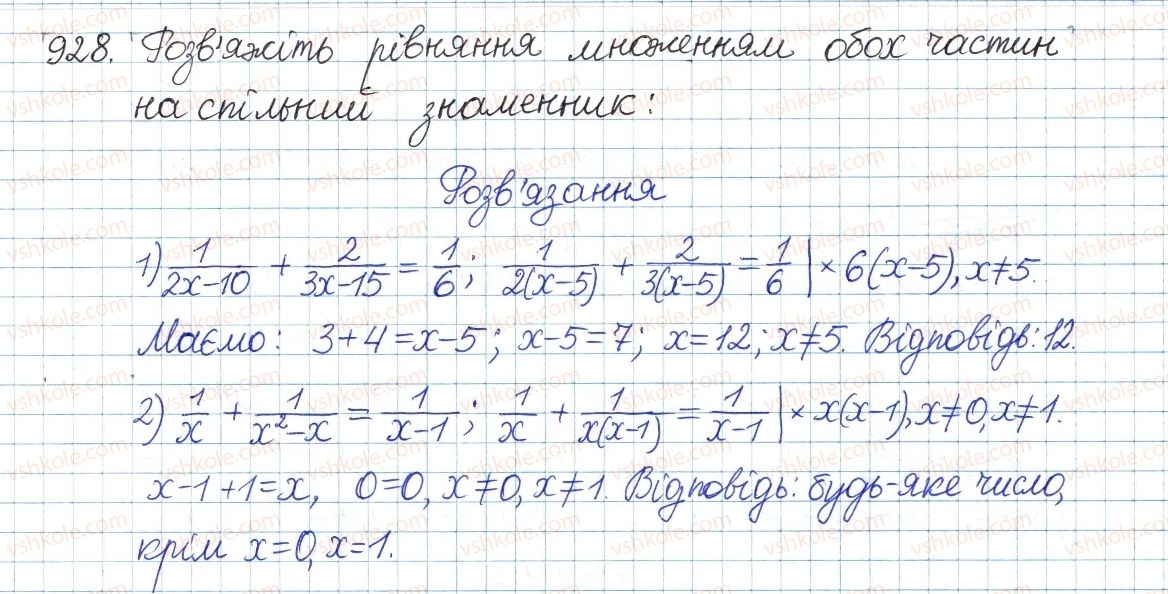 928. Розв'яжіть рівняння множенням обох частин
на спільний знаменник:
Розв'язання
1) 1/(2x-10) + 2/(3x-15) = 1/6; 1/(2(x-5)) + 2/(3(x-5)) = 1/6 | × 6(x-5), x≠5.
Маємо: 3+4=x-5; x-5=7; x=12; x≠5. Відповідь: 12.
2) 1/x + 1/(x²-x) = 1/(x-1); 1/x + 1/(x(x-1)) = 1/(x-1) | × x(x-1), x≠0, x≠1.
x-1+1=x, 0=0, x≠0, x≠1. Відповідь: будь-яке число,
крім x=0, x=1.
vshkole.com